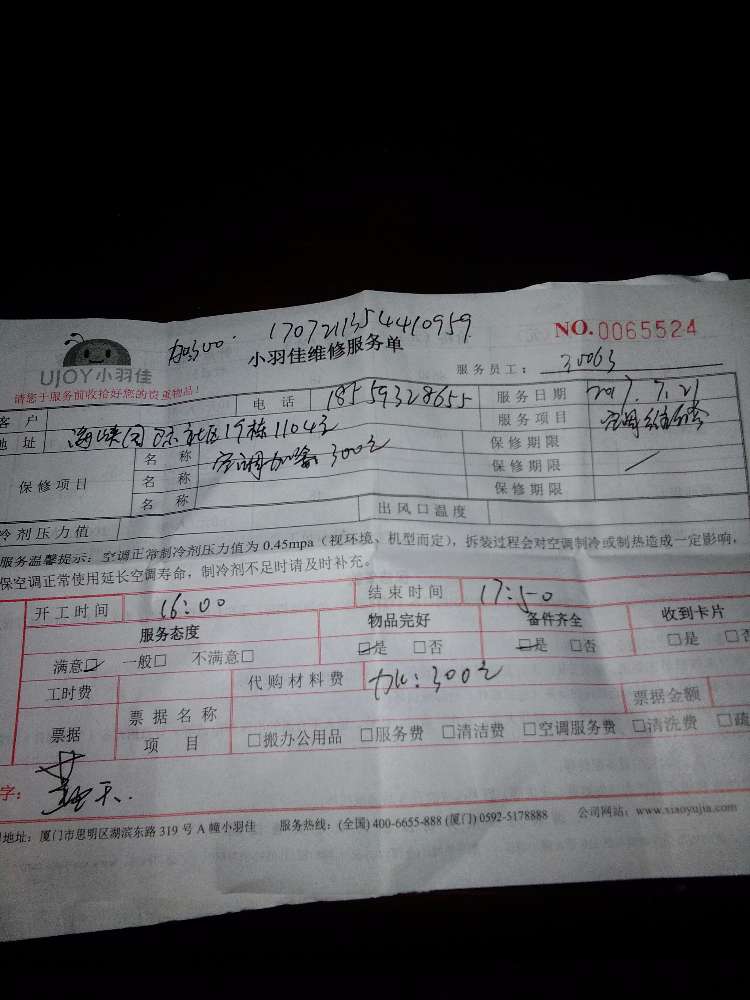 加300. 1707211354410959
NO.0065524
UJOY小羽佳
小羽佳维修服务单
服务员工: 30063
请您于服务前收拾好您的贵重物品!
客 户 电 话 18559328655 服务日期 2017.7.21
地 址 社区19栋1104室 服务项目 空调维修
保修项目 名 称 空调加 300元 保修期限
名 称 保修期限
名 称 保修期限
冷剂压力值 出风口温度
服务温馨提示: 空调正常制冷剂压力值为 0.45mpa (视环境、机型而定), 拆装过程会对空调制冷或制热造成一定影响,
保空调正常使用延长空调寿命, 制冷剂不足时请及时补充。
开工时间 16:00 结束时间 17:50
服务态度 物品完好 备件齐全 收到卡片
满意☑ 一般□ 不满意□ ☑是 □否 ☑是 □否 □是 □否
工时费 代购材料费 300元
票据 票据名称 票据金额
项 目 □搬办公用品 □服务费 □清洁费 □空调服务费 □清洗费 □疏
字:
地址: 厦门市思明区湖滨东路 319 号 A 幢小羽佳 服务热线: (全国) 400-6655-888 (厦门) 0592-5178888 公司网站: www.xiaoyujia.com